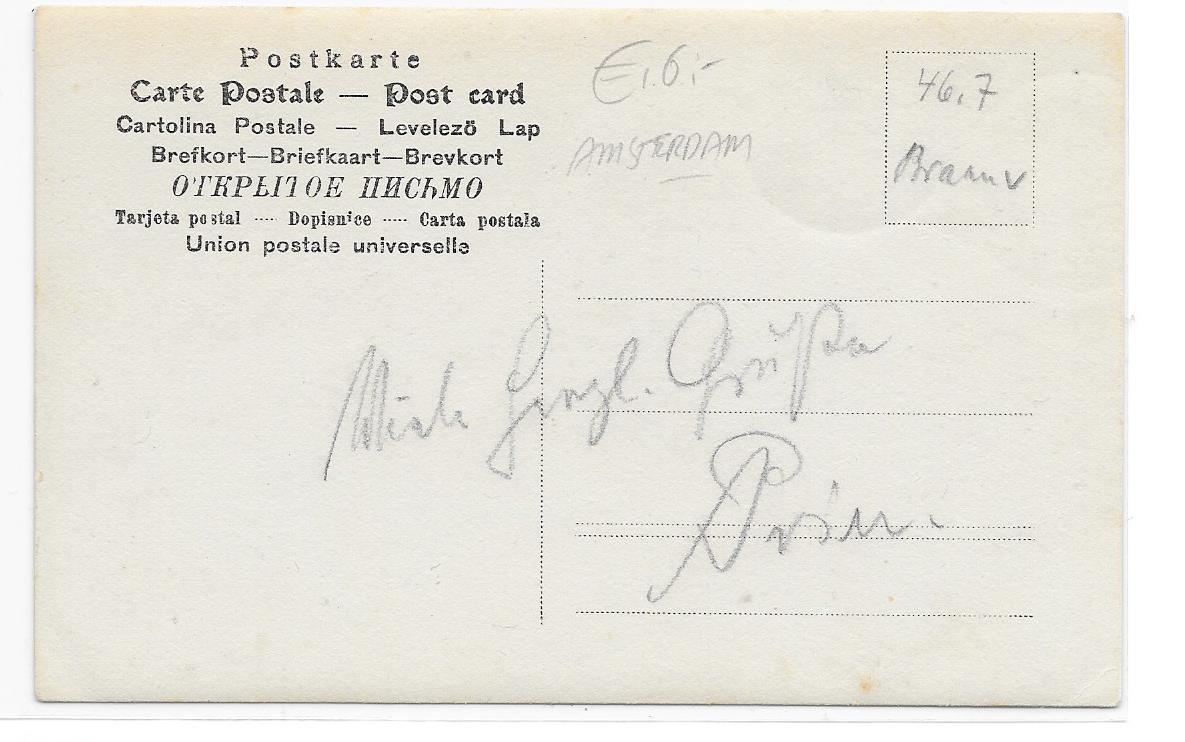 Postkarte
Carte Postale — Post card
Cartolina Postale — Levelező Lap
Brefkort—Briefkaart—Brevkort
ОТКРЫТОЕ ПИСЬМО
Tarjeta postal ····· Dopisnice ····· Carta postala
Union postale universelle
E1.6:-
AMSTERDAM
46.7
Viele Herzl. Grüße